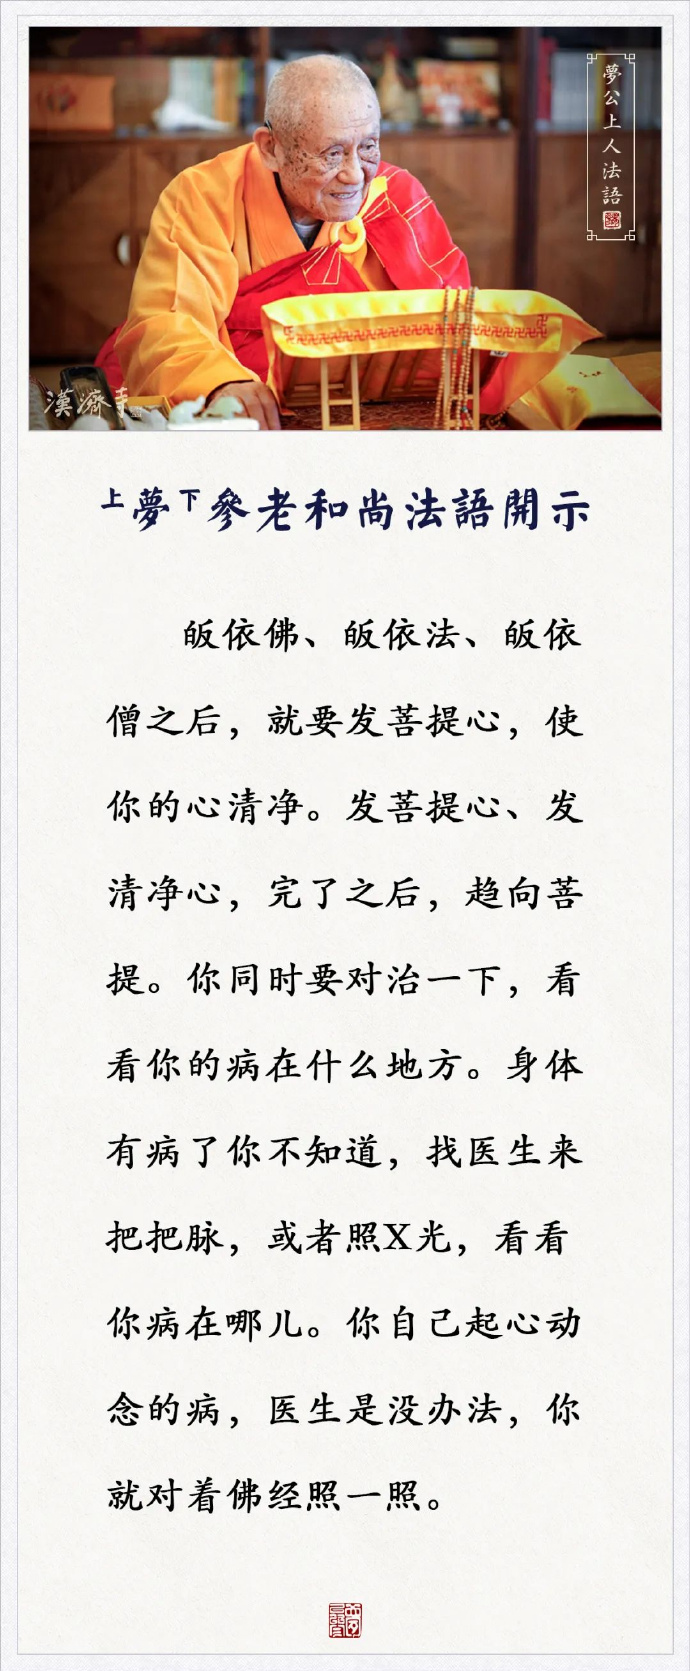 夢公上人法語
漢濟寺
上夢下參老和尚法語開示
皈依佛、皈依法、皈依
僧之后，就要发菩提心，使
你的心清净。发菩提心、发
清净心，完了之后，趋向菩
提。你同时要对治一下，看
看你的病在什么地方。身体
有病了你不知道，找医生来
把把脉，或者照X光，看看
你病在哪儿。你自己起心动
念的病，医生是没办法，你
就对着佛经照一照。